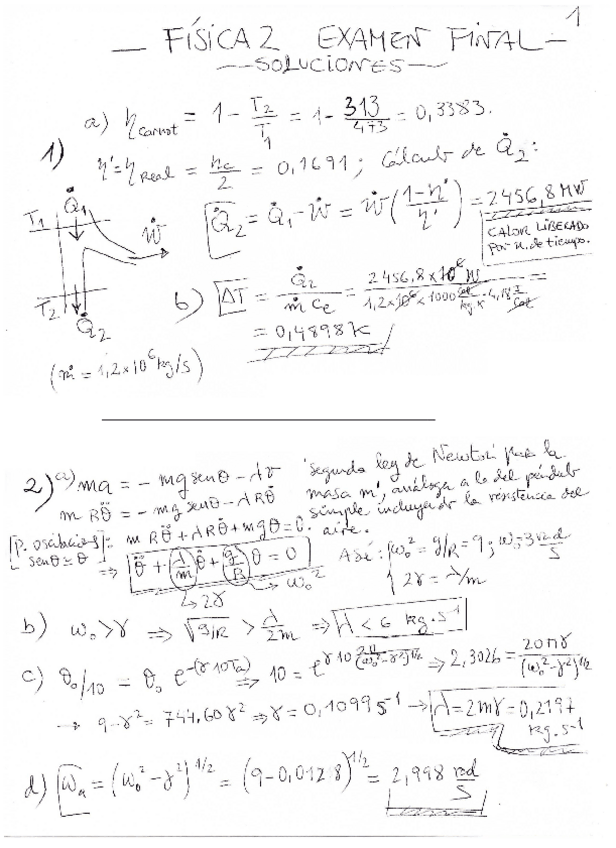 1
— FÍSICA 2 EXAMEN FINAL —
— SOLUCIONES —
1) a) η_Carnot = 1 - T₂/T₁ = 1 - 313/473 = 0,3383.
η' = η_Real = η_c/2 = 0,1691 ; Cálculo de Q̇₂:
T₁ Q̇₁ Ẇ T₂ Q̇₂
Q̇₂ = Q̇₁ - Ẇ = Ẇ ((1-η')/η') = 2456,8 MW
CALOR LIBERADO
por u. de tiempo.
b) ΔT = Q̇₂/(ṁ Ce) = (2456,8 x 10⁶ W)/(1,2 x 10⁶ x 1000 cal/(kg K) · 4,18 J/cal) =
= 0,4898 K
(ṁ = 1,2 x 10⁶ kg/s)
2) a) ma = - mg sen θ - λv
segunda ley de Newton para la
masa m, análoga a la del péndulo
simple incluyendo la resistencia del
aire.
[P. oscilaciones]
sen θ ≃ θ
⇒ θ̈ + (λ/m) θ̇ + (g/R) θ = 0
→ 2γ → ω₀²
Así: ω₀² = g/R = 9 ; ω₀ = 3 rad/s
2γ = λ/m
b) ω₀ > γ ⇒ √g/R > λ/2m ⇒ λ < 6 kg·s⁻¹
c) θ₀/10 = θ₀ e^-(γ 10 Ta) ⇒ 10 = e^γ 10 2π/(ω₀²-γ²)^1/2 ⇒ 2,3026 = 20πγ/(ω₀²-γ²)^1/2
→ 9 - γ² = 744,60 γ² ⇒ γ = 0,1099 s⁻¹ → λ = 2mγ = 0,2197
kg·s⁻¹
d) ω_a = (ω₀² - γ²)^1/2 = (9 - 0,01218)^1/2 = 2,998 rad/s